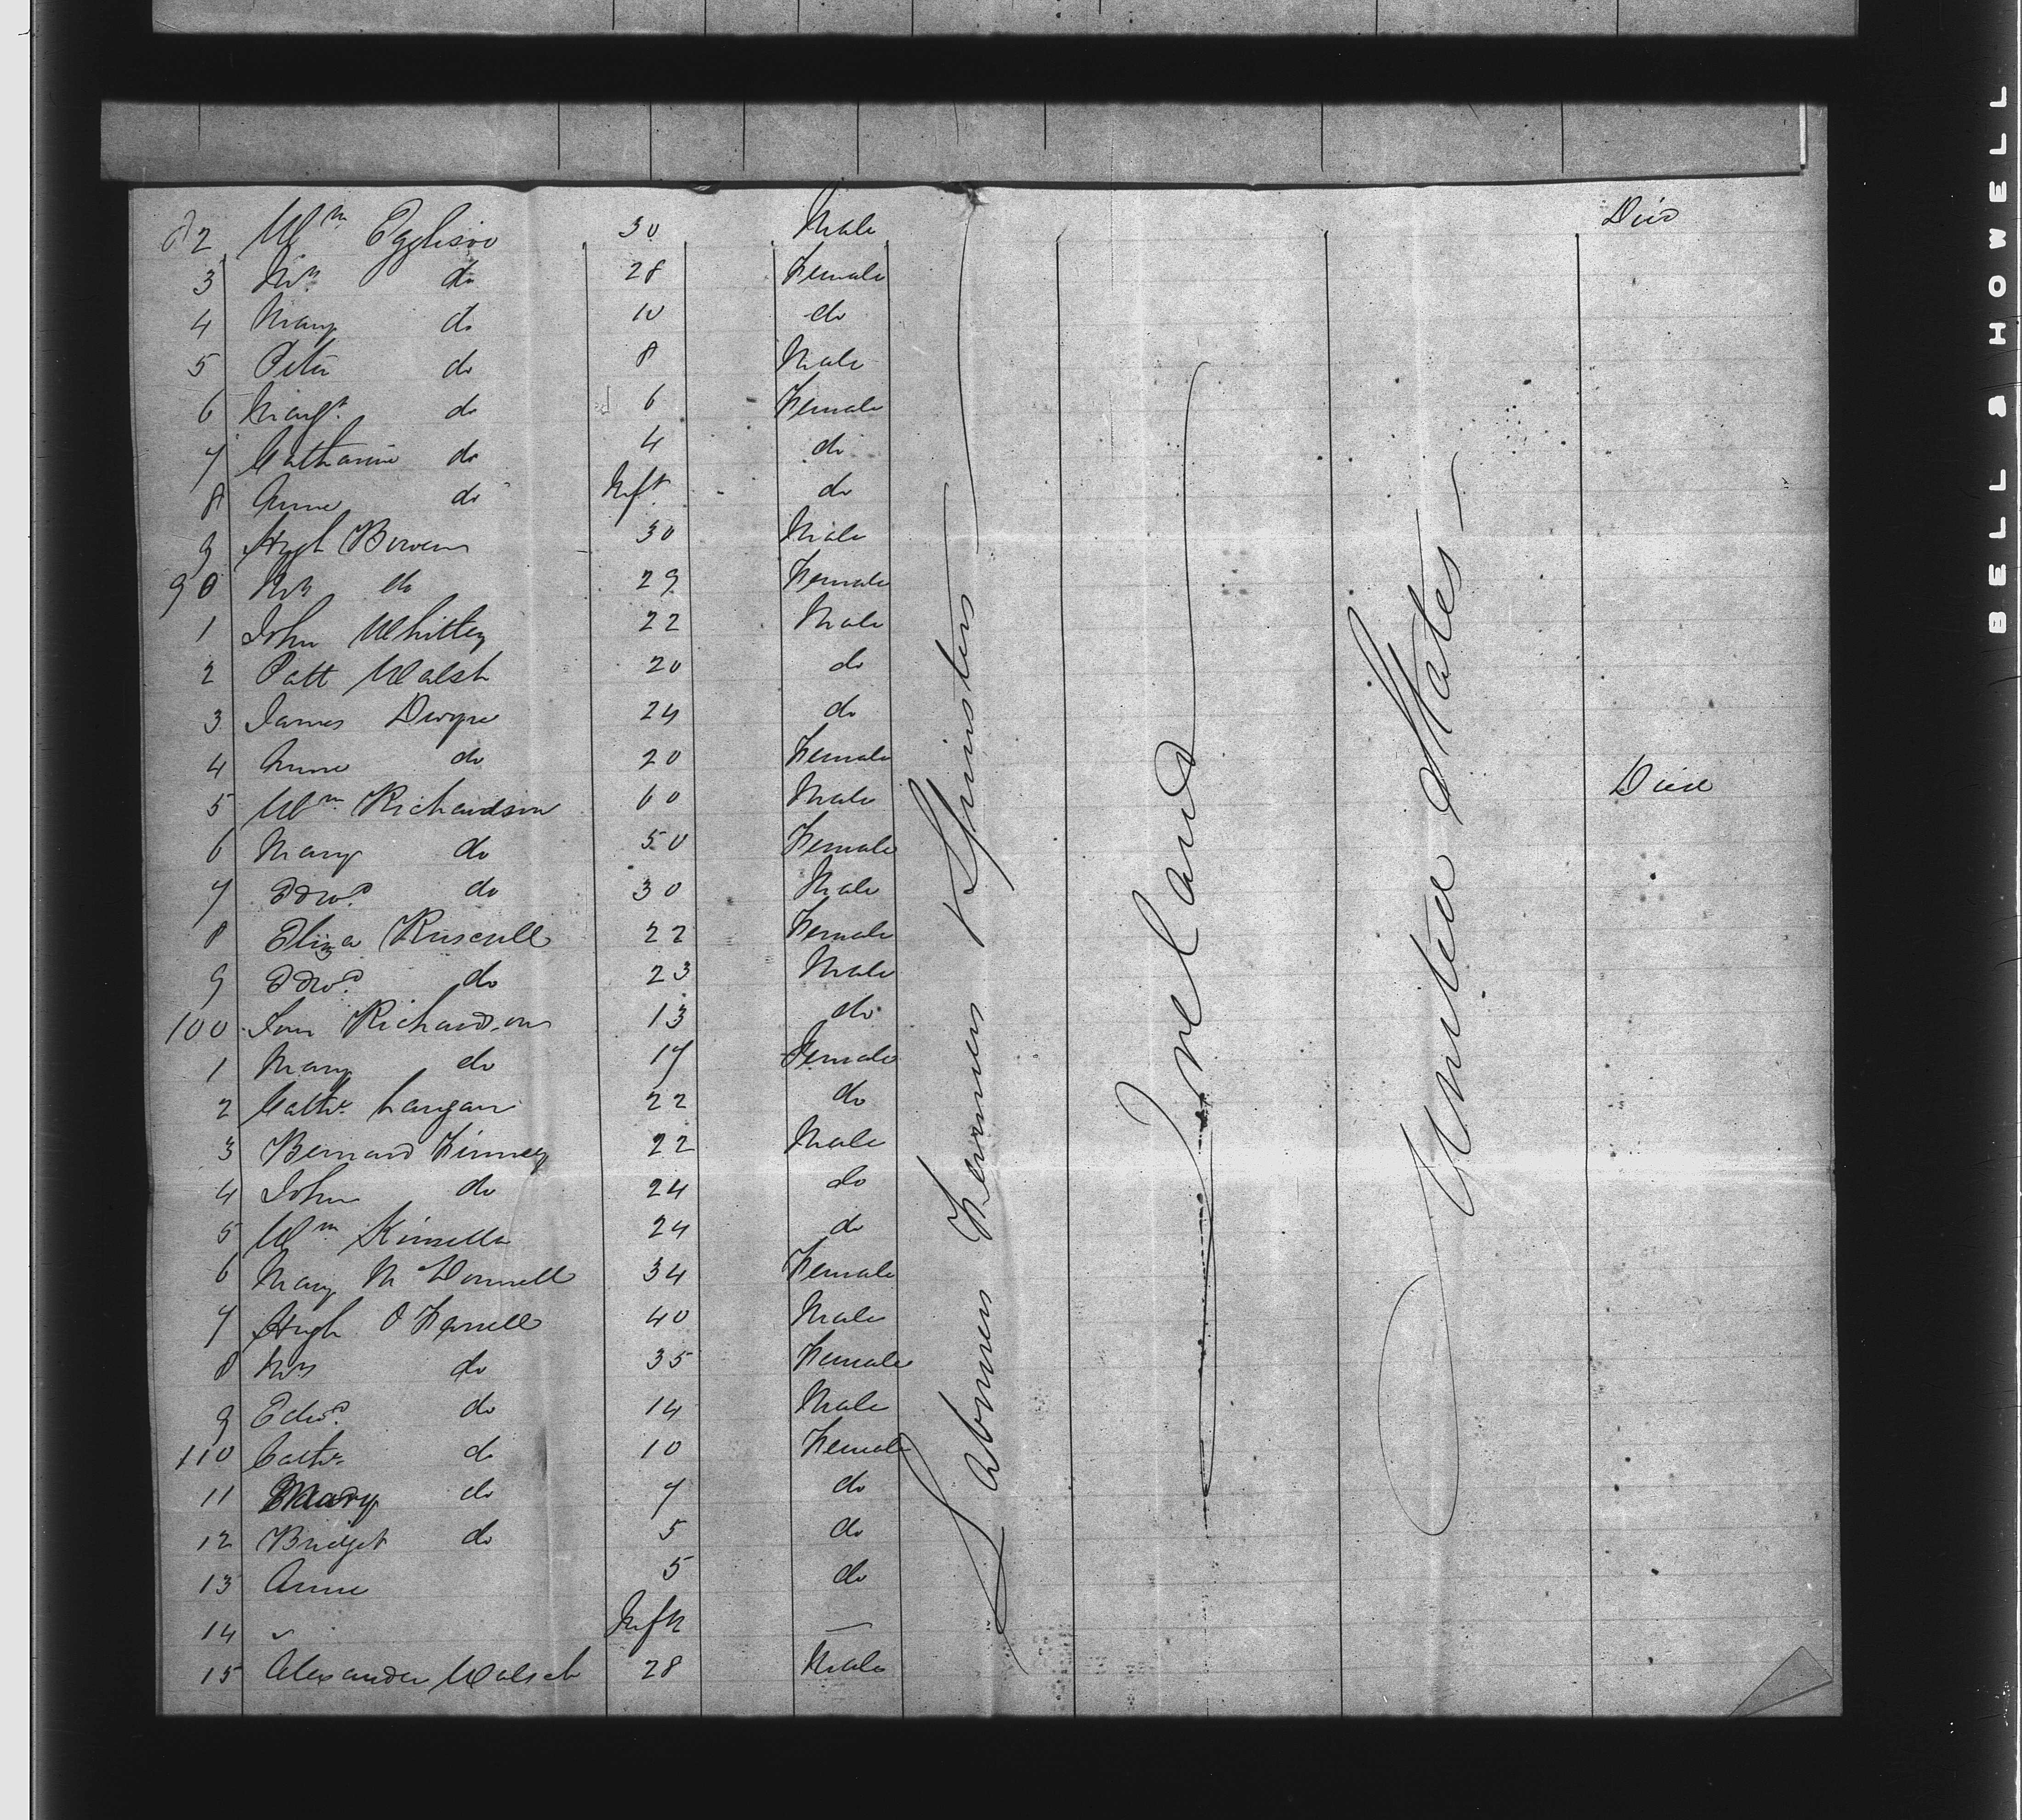 82 Wm Eggleson 30 Male Died
3 Mrs do 28 Female
4 Mary do 10 do
5 Peter do 8 Male
6 Margt do 6 Female
7 Catharine do 4 do
8 Anne do Inft do
9 Hugh Bowen 30 Male
90 Mrs do 29 Female
1 John Whitley 22 Male
2 Patt Walsh 20 do
3 James Dwyre 24 do
4 Anne do 20 Female
5 Wm Richardson 60 Male Died
6 Mary do 50 Female
7 Edwd do 30 Male
8 Eliza Ruscull 22 Female
9 Edwd do 23 Male
100 Richardson 13 do
1 Mary do 17 Female
2 Cathe Langan 22 do
3 Bernard Finney 22 Male
4 John do 24 do
5 Wm Kinsella 24 do
6 Mary McDonnell 34 Female
7 Hugh O Farrell 40 Male
8 Mrs do 35 Female
9 Edwd do 14 Male
110 Cathe do 10 Female
11 Mary do 7 do
12 Bridget do 5 do
13 Anne 5 do
14 " Infn —
15 Alexander Walsch 28 Male
Labourers Farmers & Spinsters
Ireland
United States
BELL & HOWELL